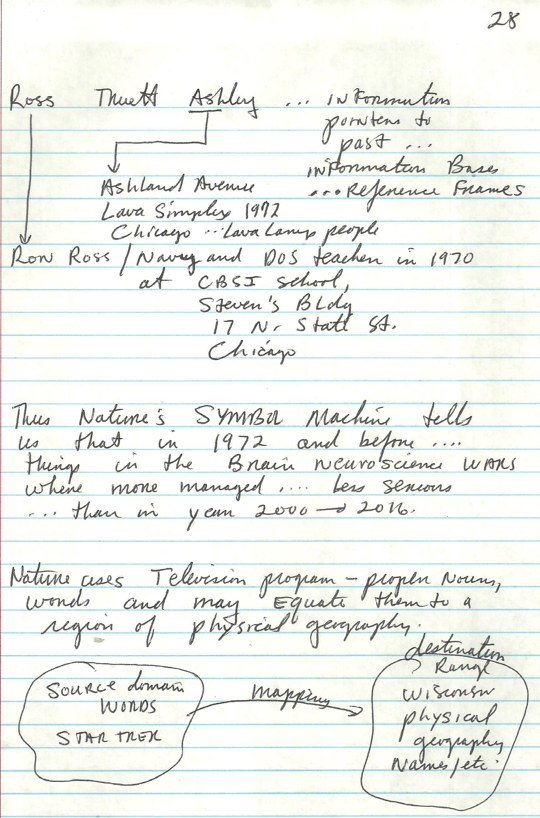 28
Ross Thuett Ashley ... information
pointers to
past ...
information Bases
... Reference Frames
Ashland Avenue
Lava Simplex 1972
Chicago ... Lava Lamp people
Ron Ross / Navy and DOS teacher in 1970
at CBSI school,
Steven's Bldg
17 N. State St.
Chicago
Thus Nature's SYMBOL Machine tells
us that in 1972 and before ....
things in the Brain Neuroscience WARS
where more managed .... Less serious
... than in year 2000 → 2016.
Nature uses Television program - proper Nouns,
words and may Equate them to a
region of physical geography.
Source domain
WORDS
STAR TREK
mapping
destination
Range
Wisconsin
physical
geography
Names/etc.